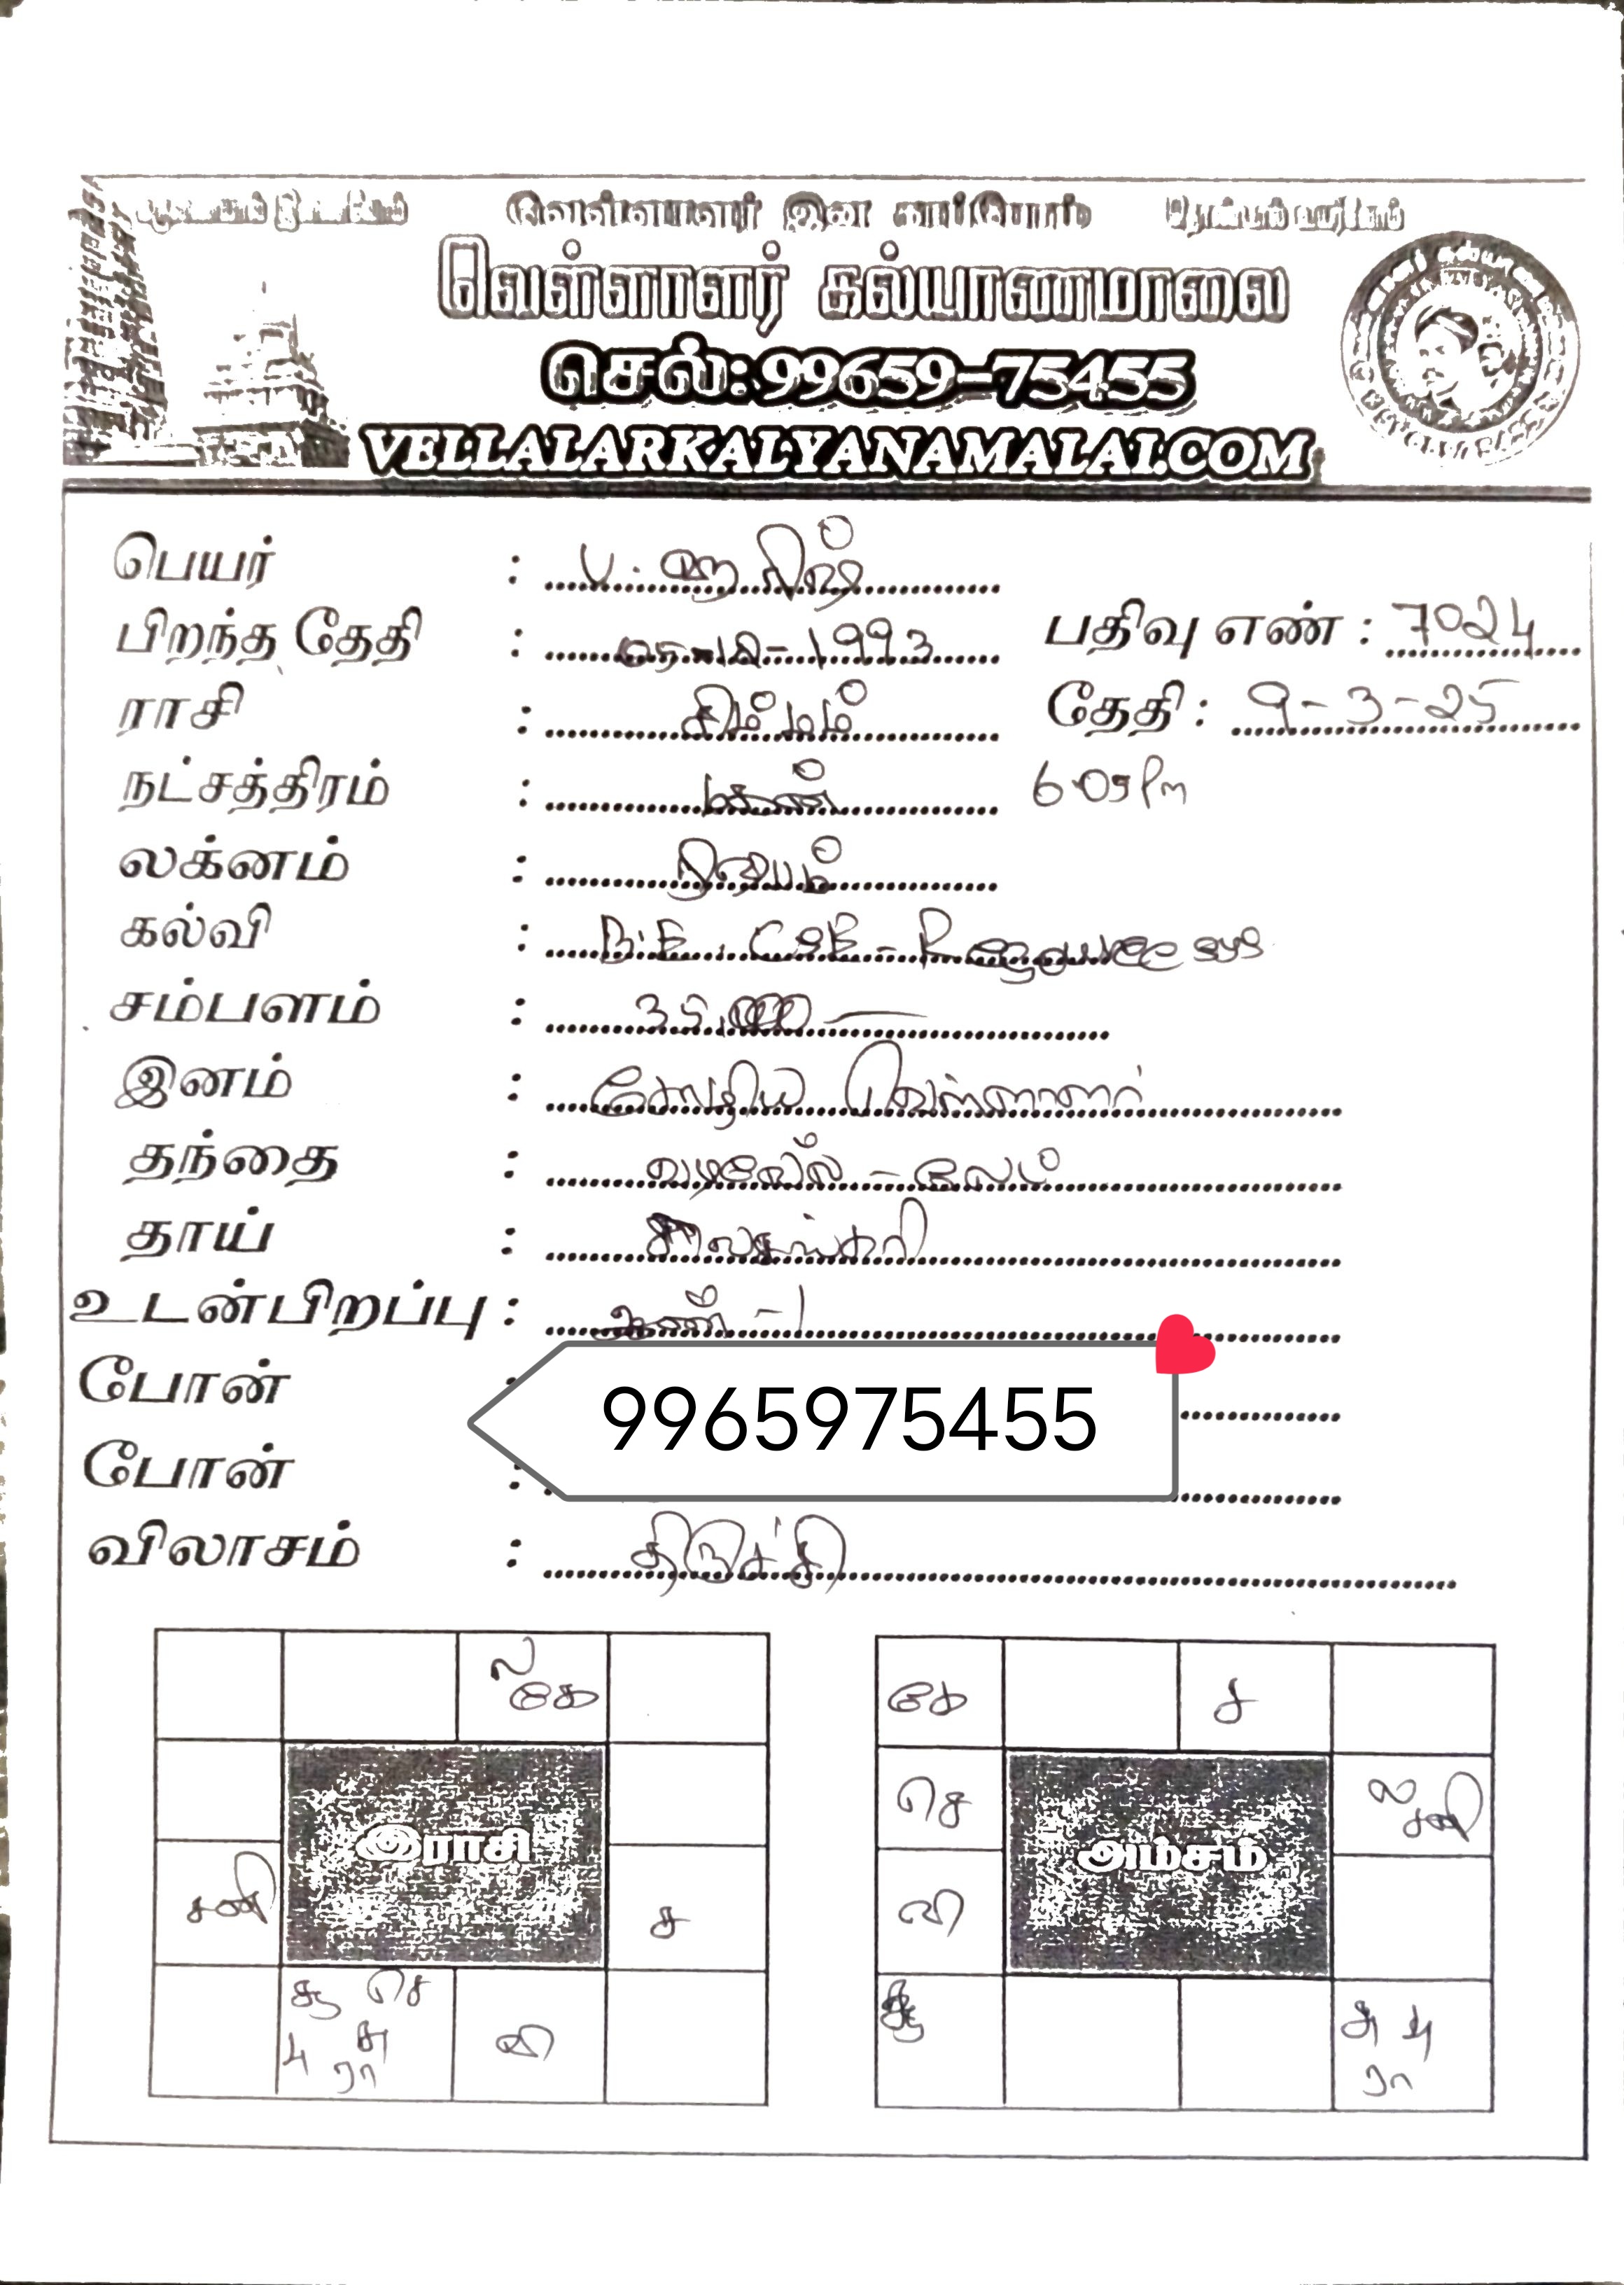 வெள்ளாளர் இன காப்போம்
வெள்ளாளர் கல்யாணமாலை
செல்: 99659-75455
VELLALARKALYANAMALAI.COM
பெயர் : V. ஹரிஷ்
பிறந்த தேதி : 05-12-1993 பதிவு எண் : 7024
ராசி : சிம்மம் தேதி : 9-3-25
நட்சத்திரம் : மகம் 6.09 Pm
லக்னம் : ரிஷபம்
கல்வி : B.E. CSE -
சம்பளம் : 35,000
இனம் : சோழிய வெள்ளாளர்
தந்தை : வடிவேல் - லேட்
தாய் :
உடன்பிறப்பு : ஆண் - 1
போன் : 9965975455
போன் :
விலாசம் : திருச்சி
ல கே
சனி
ச
சூ செ
பு சு
ரா
வி
இராசி
கே
ச
செ
ல சனி
வி
சூ
சு பு
ரா
அம்சம்